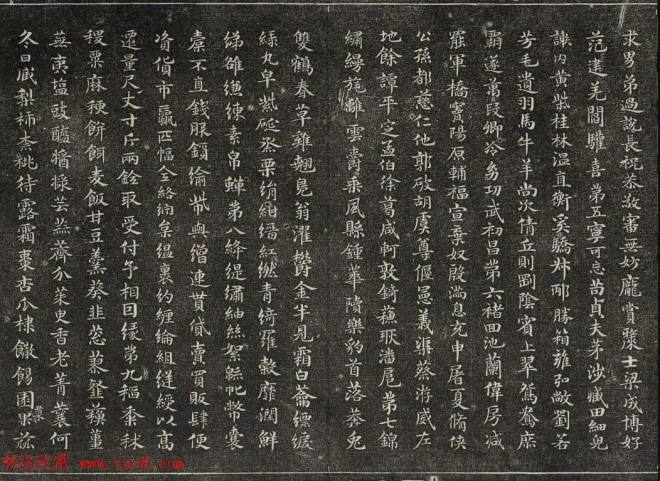 求男弟過說長祝恭敬審無妨龐賞贛士梁成博好
范建羌閻驩喜第五寧可忘苟貞夫茅涉臧田細兒
謝內黃柴桂林溫直衡奚驕叔邴勝箱雍弘敞劉若
芳毛遺羽馬牛羊尚次倩丘則劉陰賓上翠鴛鴦庶
霸遂萬段卿泠幼功武初昌第六褚回池蘭偉房減
罷軍橋竇陽原輔福宣棄奴殷滿息充申屠夏脩俠
公孫都慈仁他郭破胡虞尊偃憲義渠蔡游威左
地餘譚平定孟伯徐葛咸軻敦錡蘇耿潘扈第七錦
繡縵旄離雲爵乘風縣鍾華隤樂豹首落莽兔
雙鶴春草雞翹鳧翁濯鬱金半見霜白䕩縹綟
綠丸皁紫硟烝栗絹紺縉紅繎青綺羅縠靡潤鮮
綈雒縑練素帛蟬第八絳緹繡紬絲絮緜帊幣囊
橐不直錢服鎖緰帶與繒連貰貸賣買販肆便
資貨市贏匹幅全絡納枲縕裏約纏綸組縌綬以高
遷量尺丈寸斤兩銓取受付予相因緣第九稻黍秫
稷粟麻秔餅餌麥飯甘豆羹葵韭蔥蓼韰蘇薑
蕪荑鹽豉醯醬漿芸蒜薺介茱臾香老菁蘘何
冬日臧梨柿柰桃待露霜棗杏瓜棣饊餳園果蓏